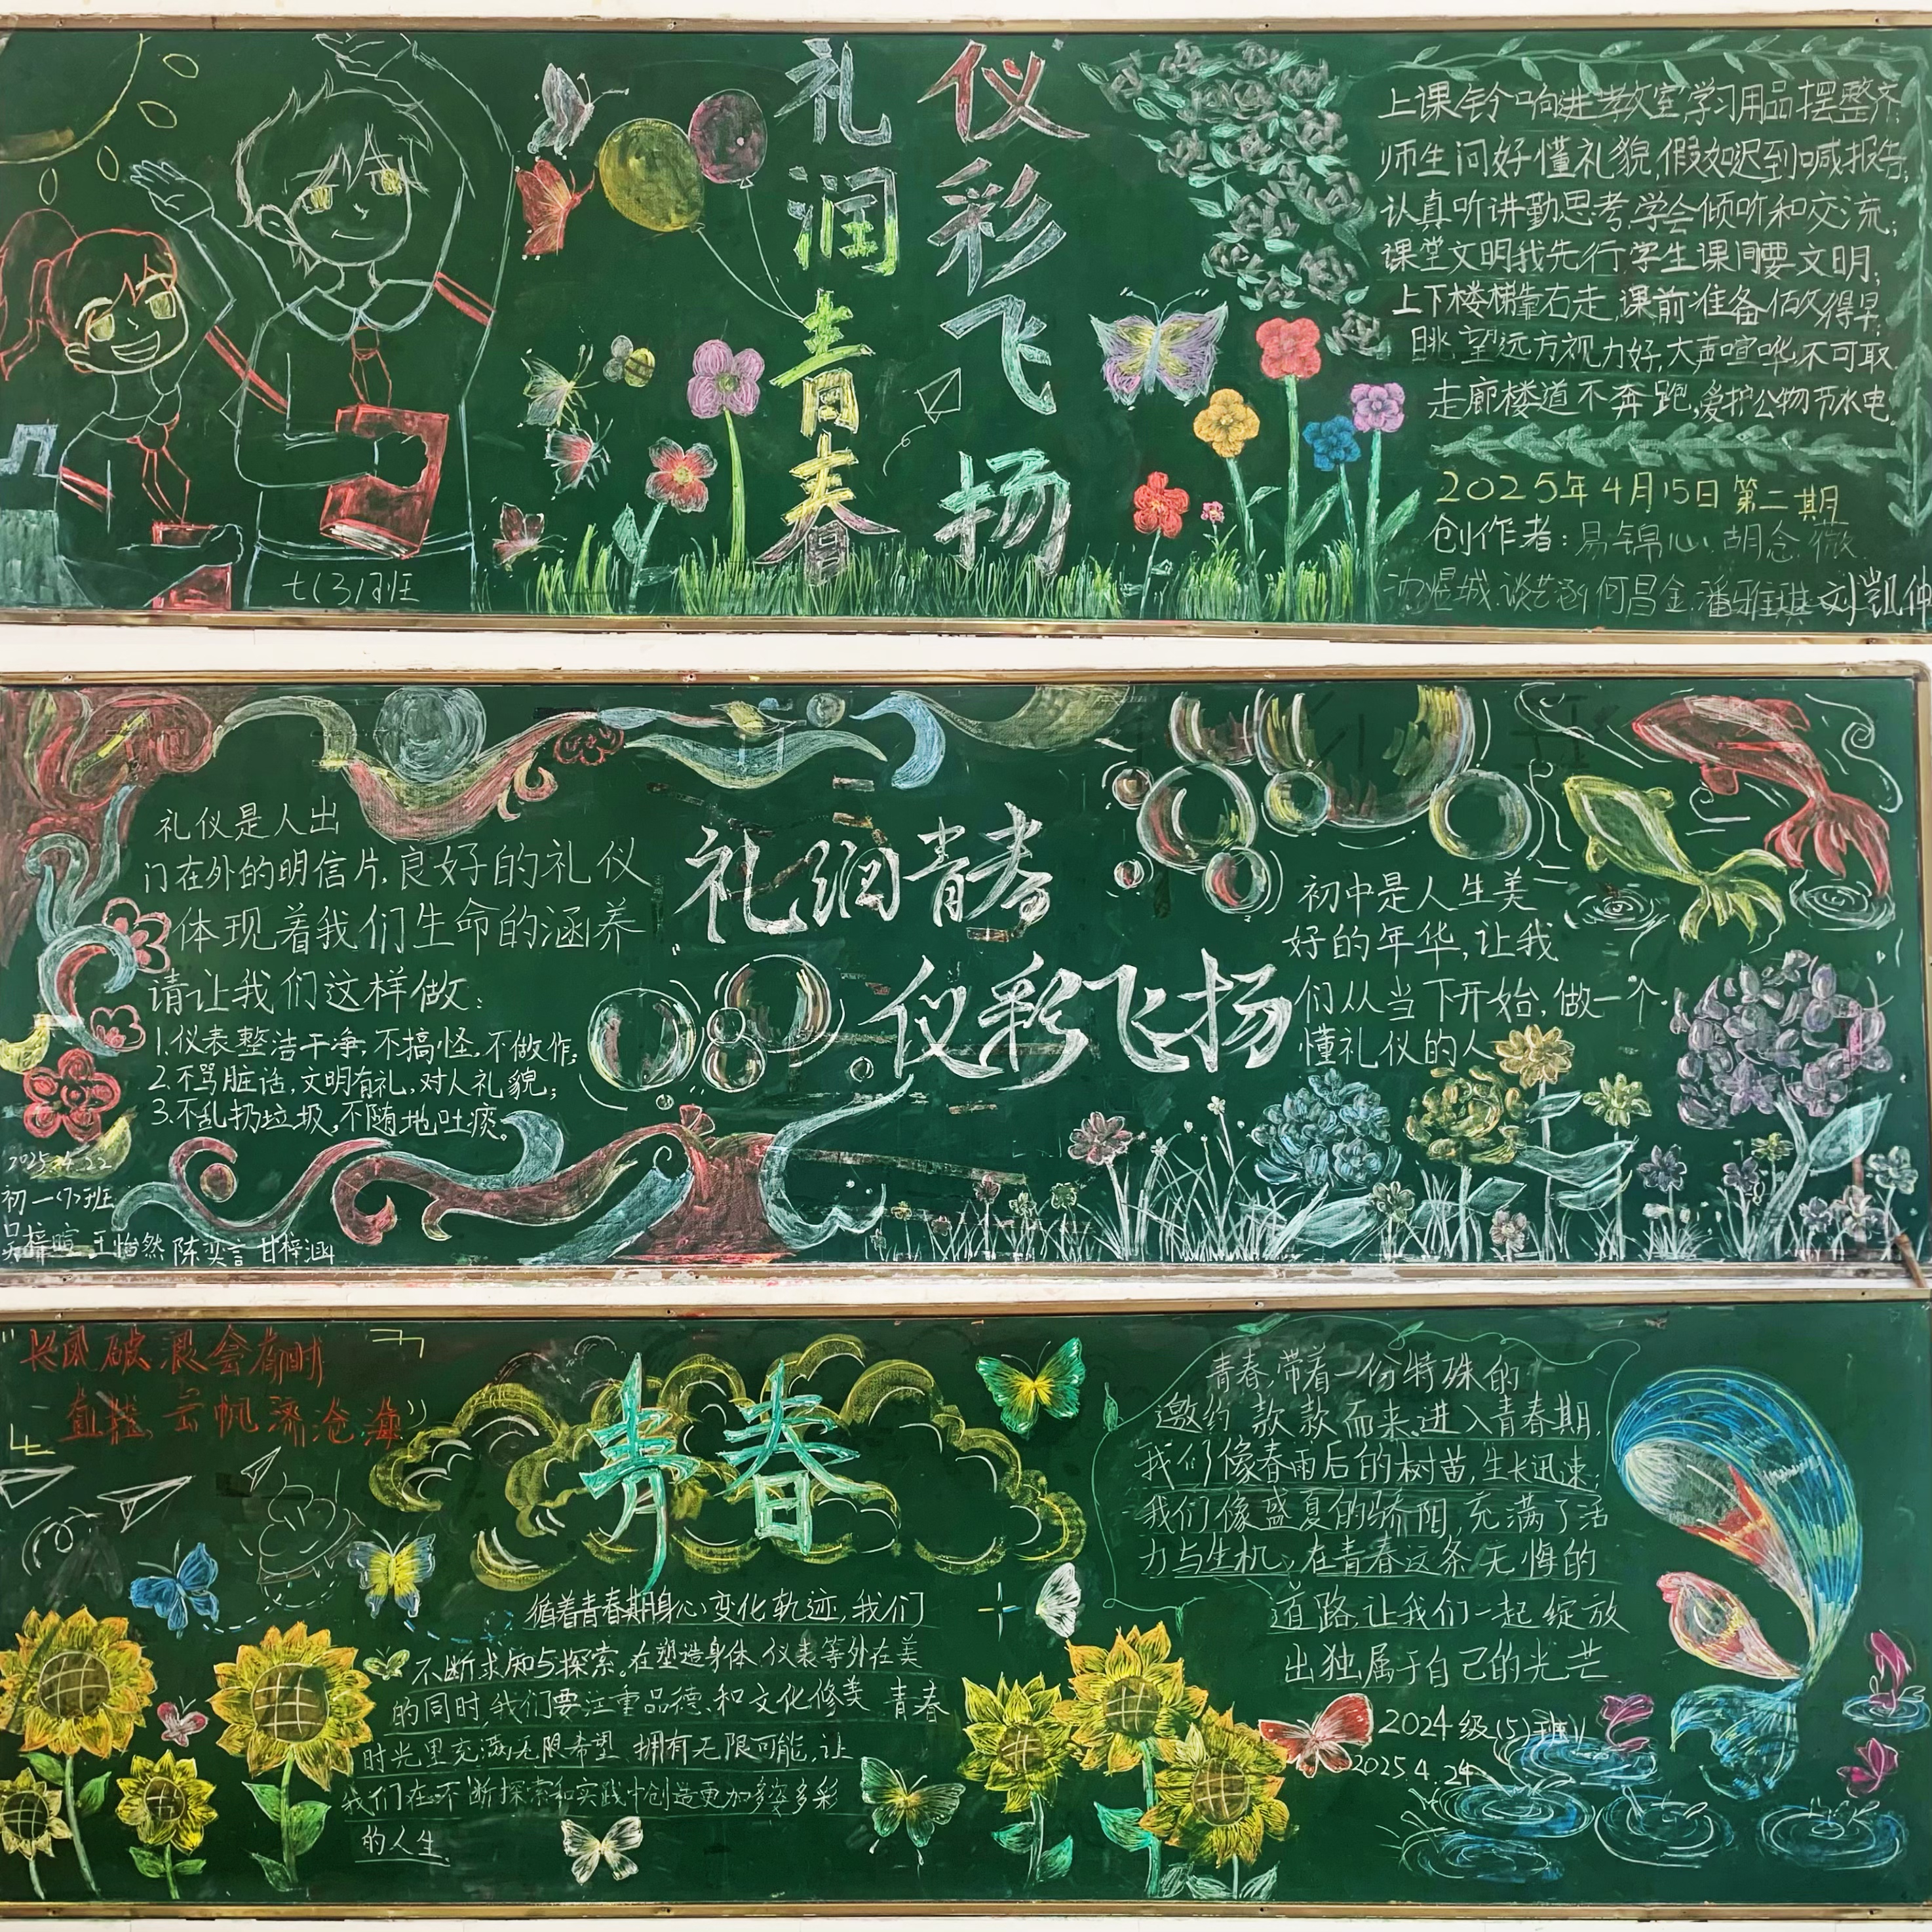 礼润青春
仪彩飞扬
上课铃响进教室学习用品摆整齐.
师生问好懂礼貌,假如迟到喊报告;
认真听讲勤思考,学会倾听和交流;
课堂文明我先行,学生课间要文明;
上下楼梯靠右走,课前准备做得早;
眺望远方视力好,大声喧哗不可取
走廊楼道不奔跑,爱护公物节水电.
2025年4月15日第二期
创作者:易锦心 胡念薇
沈煜城 谈艺涵 何昌金 潘雅琪 刘凯仲
七(3)班
礼仪是人出
门在外的明信片,良好的礼仪
体现着我们生命的涵养
请让我们这样做:
1.仪表整洁干净,不搞怪,不做作;
2.不骂脏话,文明有礼,对人礼貌;
3.不乱扔垃圾,不随地吐痰。
2025.4.22
初一(7)班
吴梓暄 王怡然 陈奕言 甘梓涵
礼润青春
仪彩飞扬
初中是人生美
好的年华,让我
们从当下开始,做一个
懂礼仪的人
"长风破浪会有时
直挂云帆济沧海"
青春
循着青春期身心变化轨迹,我们
不断求知与探索。在塑造身体、仪表等外在美
的同时,我们要注重品德、和文化修美 青春
时光里充满无限希望 拥有无限可能,让
我们在不断探索和实践中创造更加多姿多彩
的人生.
青春,带着一份特殊的
邀约 款款而来,进入青春期,
我们像春雨后的树苗,生长迅速;
我们像盛夏的骄阳,充满了活
力与生机,在青春这条无悔的
道路,让我们一起绽放
出独属于自己的光芒
2024级(5)班
2025 4.24